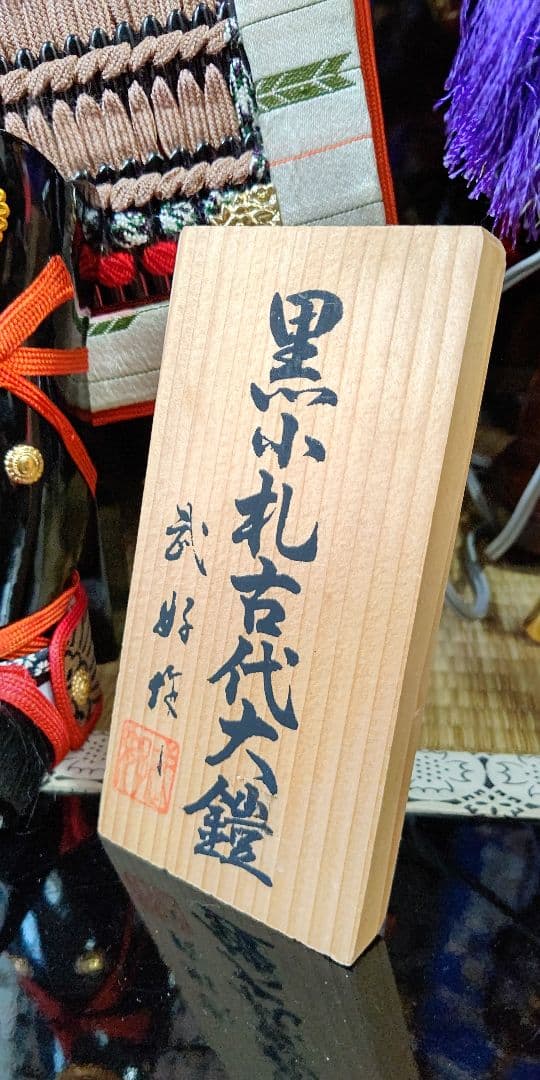 黒小札古代大鎧
武好作